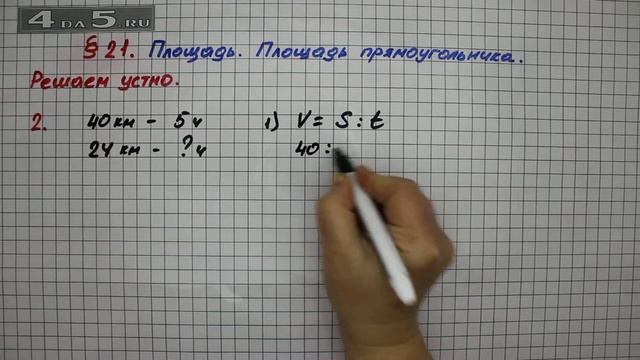 4 DA 5.RU
§21. Площадь. Площадь прямоугольника.
Решаем устно.
2. 40 км - 5 ч 1) V = S : t
24 км - ? ч 40 :